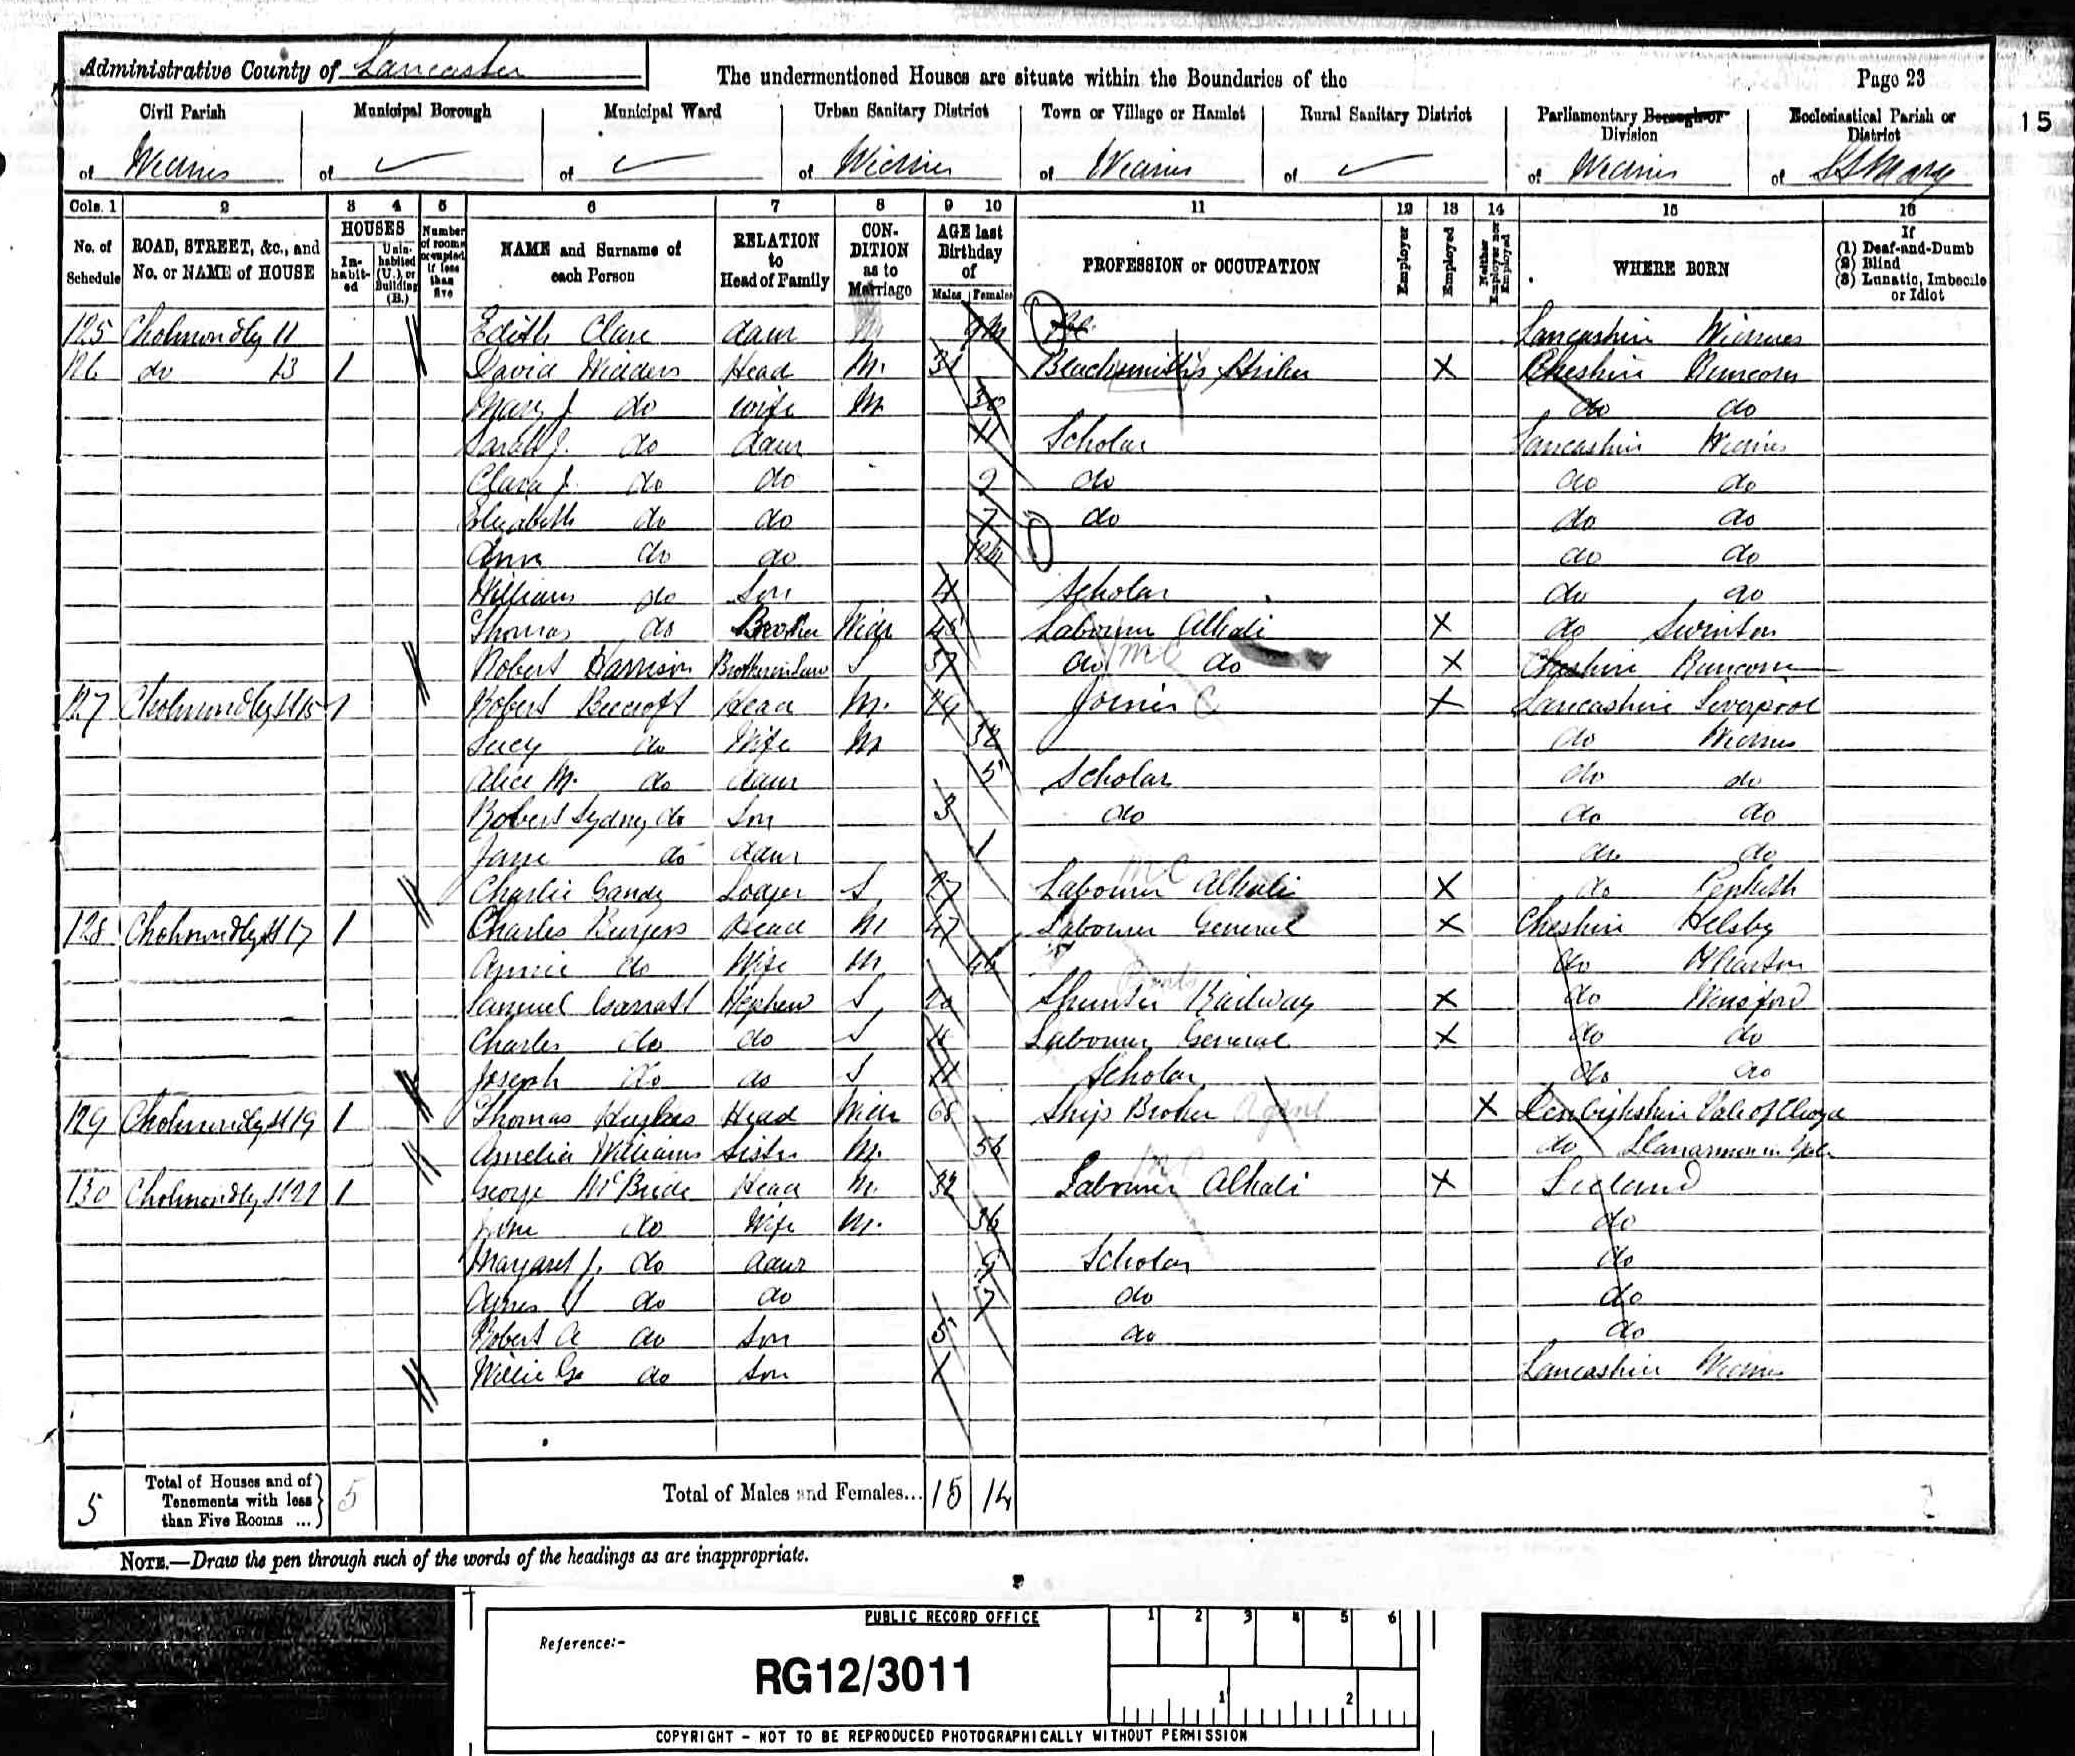 Administrative County of Lancaster
The undermentioned Houses are situate within the Boundaries of the
Page 23
15
Civil Parish of Widnes
Municipal Borough of ✓
Municipal Ward of ✓
Urban Sanitary District of Widnes
Town or Village or Hamlet of Widnes
Rural Sanitary District of ✓
Parliamentary Borough or Division of Widnes
Ecclesiastical Parish or District of St Mary
Cols. 1 2 3 4 5 6 7 8 9 10 11 12 13 14 15 16
No. of Schedule
ROAD, STREET, &c., and No. or NAME of HOUSE
HOUSES
In-habit-ed
Unin-habited (U.), or Building (B.)
Number of rooms occupied if less than five
NAME and Surname of each Person
RELATION to Head of Family
CON-DITION as to Marriage
AGE last Birthday of
Males Females
PROFESSION or OCCUPATION
Employer
Employed
Neither Employer nor Employed
WHERE BORN
If (1) Deaf-and-Dumb (2) Blind (3) Lunatic, Imbecile or Idiot
125 Cholmondly 11 Edith Clare daur 9m Lancashire Widnes
126 do 13 1 David Widders Head M. 31 Blacksmith's Striker X Cheshire Runcorn
Mary J. do Wife M 30 do do
Sarah J. do daur 11 Scholar Lancashire Widnes
Clara J. do do 9 do do do
Elizabeth do do 7 do do do
Ann do do do do
William do Son 4 Scholar do do
Thomas do Brother Widr 45 Labourer Alkali X do Swinton
Robert Harrison Brother in Law S 37 do mC do X Cheshire Runcorn
127 Cholmondly St 15 1 Robert Beecroft Head M. 29 Joiner C X Lancashire Liverpool
Lucy do Wife M 32 do Widnes
Alice M. do daur 5 Scholar do do
Robert Sydney do Son 3 do do do
Jane do daur 1 do do
Charlie Gandy Lodger S 27 Labourer Alkali mC X do Penketh
128 Cholmondly St 17 1 Charles Burgess Head M 47 Labourer General X Cheshire Helsby
Annie do Wife M 46 do Wharton
Samuel Garratt Nephew S 20 Shunter Railway X do Winsford
Charles do do S Labourer General X do do
Joseph do do S 11 Scholar do do
129 Cholmondly St 19 1 Thomas Hughes Head Widr 68 Ship Broker Agent X Denbighshire Vale of Clwyd
Amelia Williams Sister M. 56 do Llanarmon in Yale
130 Cholmondly St 21 1 George McBride Head M. 32 Labourer Alkali X Ireland
Jane do Wife M. 36 do
Margaret J. do daur 9 Scholar do
Agnes do do 7 do do
Robert A do Son 5 do do
Willie Ge do Son 1 Lancashire Widnes
5 Total of Houses and of Tenements with less than Five Rooms ... 5 Total of Males and Females... 15 14
NOTE.—Draw the pen through such of the words of the headings as are inappropriate.
PUBLIC RECORD OFFICE
1 2 3 4 5 6
Reference:-
RG12/3011
1 2
COPYRIGHT - NOT TO BE REPRODUCED PHOTOGRAPHICALLY WITHOUT PERMISSION